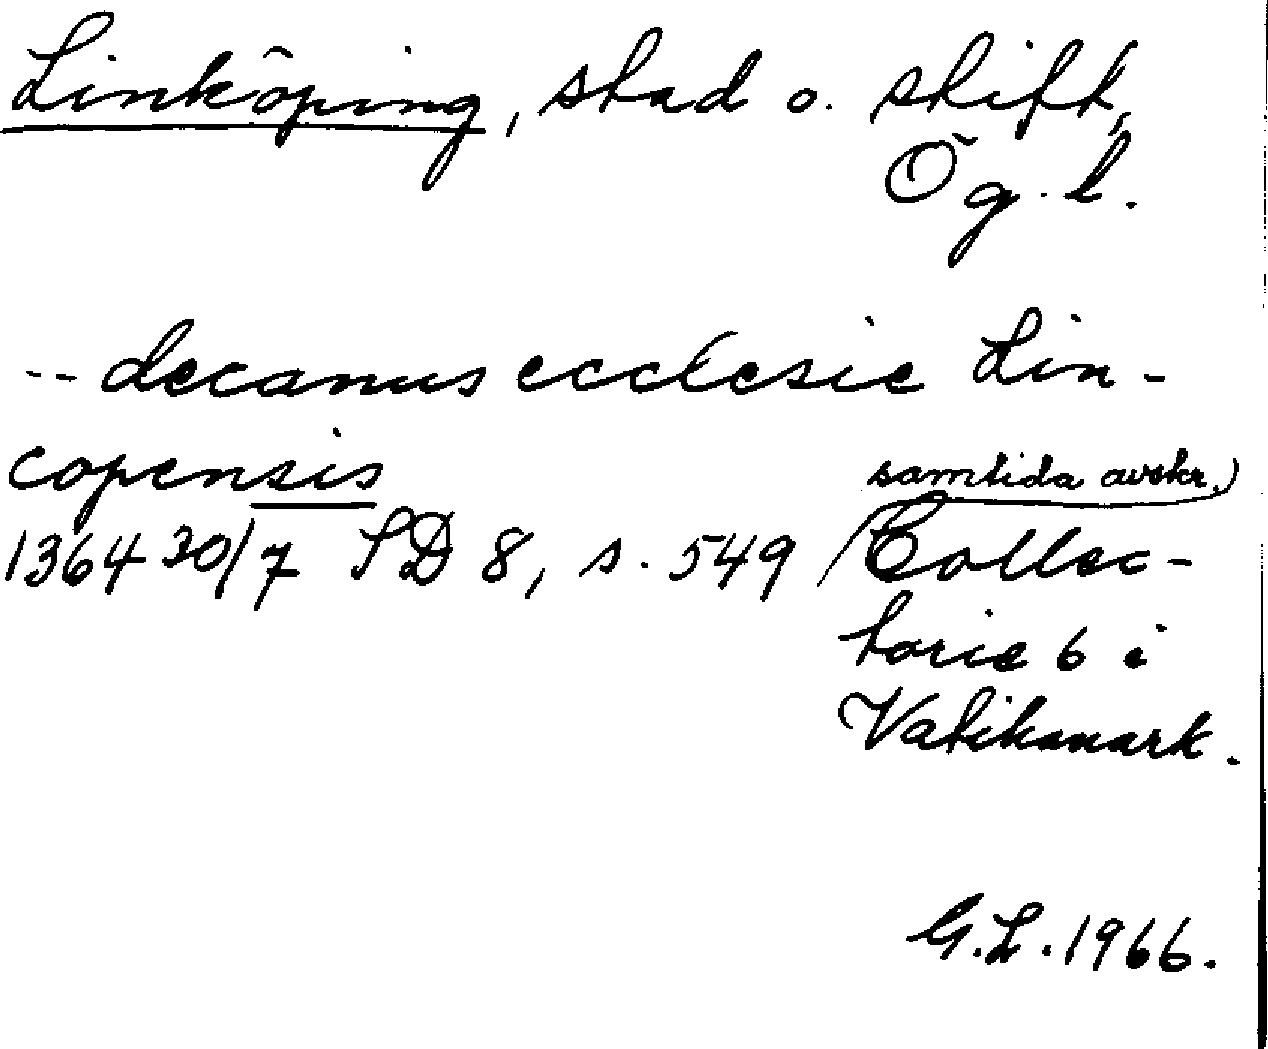 Linköping, stad o. stift,
Ög. l.
-- decanus ecclesie Lin-
copensis
samtida avskr.)
1364 30/7 SD 8, s. 549 (Collec-
torie 6 i
Vatikanark.
G.L. 1966.